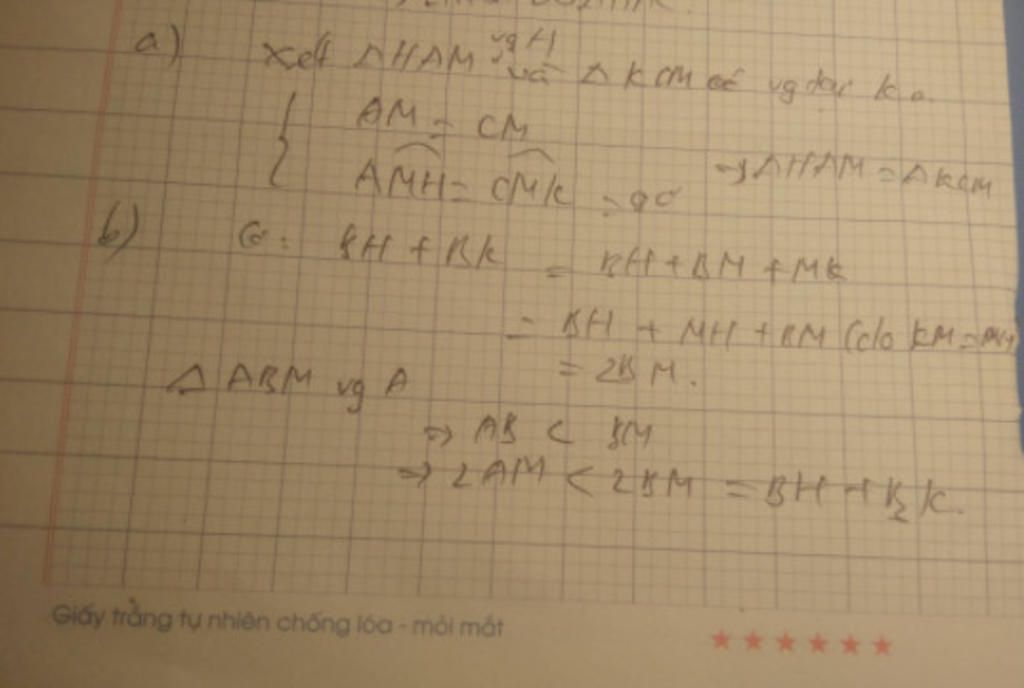 a) Xét ΔHAM vg H và ΔKCM có vg tại K.
AM = CM
AMH = CMK = 90 → ΔHAM = ΔKCM
b) Có: BH + BK = BH + BM + MK
= BH + MH + BM (do KM = MH)
= 2BM.
Δ ABM vg A
=> AB < BM
=> 2AM < 2BM = BH + BK.
Giấy trắng tự nhiên chống lóa - mỏi mắt